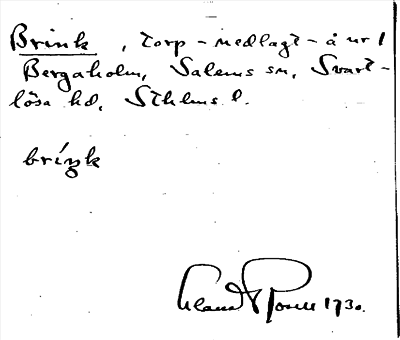 Brink, torp - nedlagt - å nr 1
Bergaholm, Salems sn, Svart-
lösa hd, Sthlms l.
bríŋk
1930.